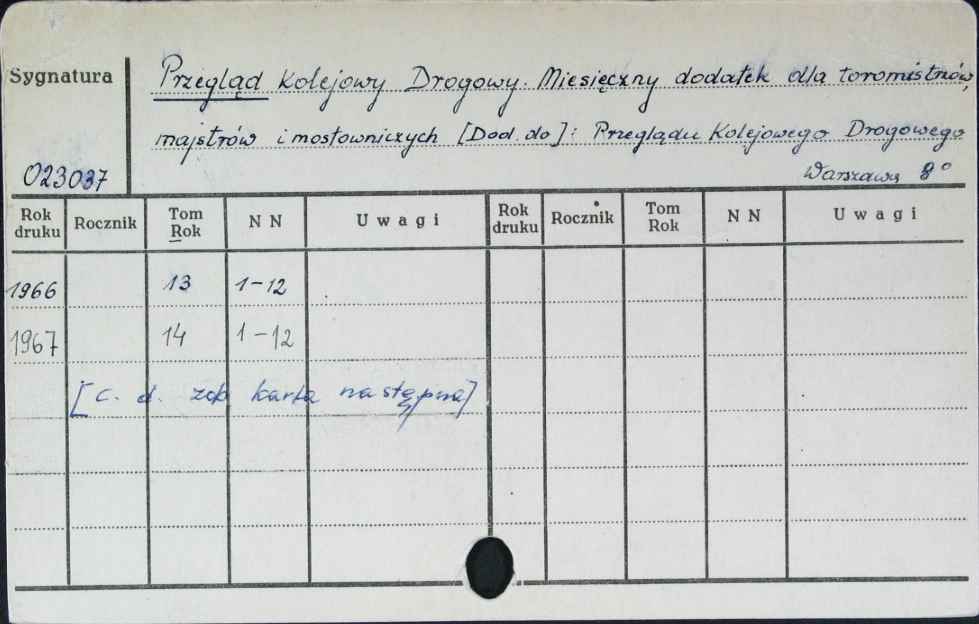 Sygnatura
Przegląd Kolejowy Drogowy. Miesięczny dodatek dla toromistrzów,
majstrów i mostowniczych [Dod. do]: Przeglądu Kolejowego Drogowego
023037
Warszawa 8°
Rok druku Rocznik Tom Rok N N Uwagi Rok druku Rocznik Tom Rok N N Uwagi
1966 13 1-12
1967 14 1-12
[c. d. zob karta następna]